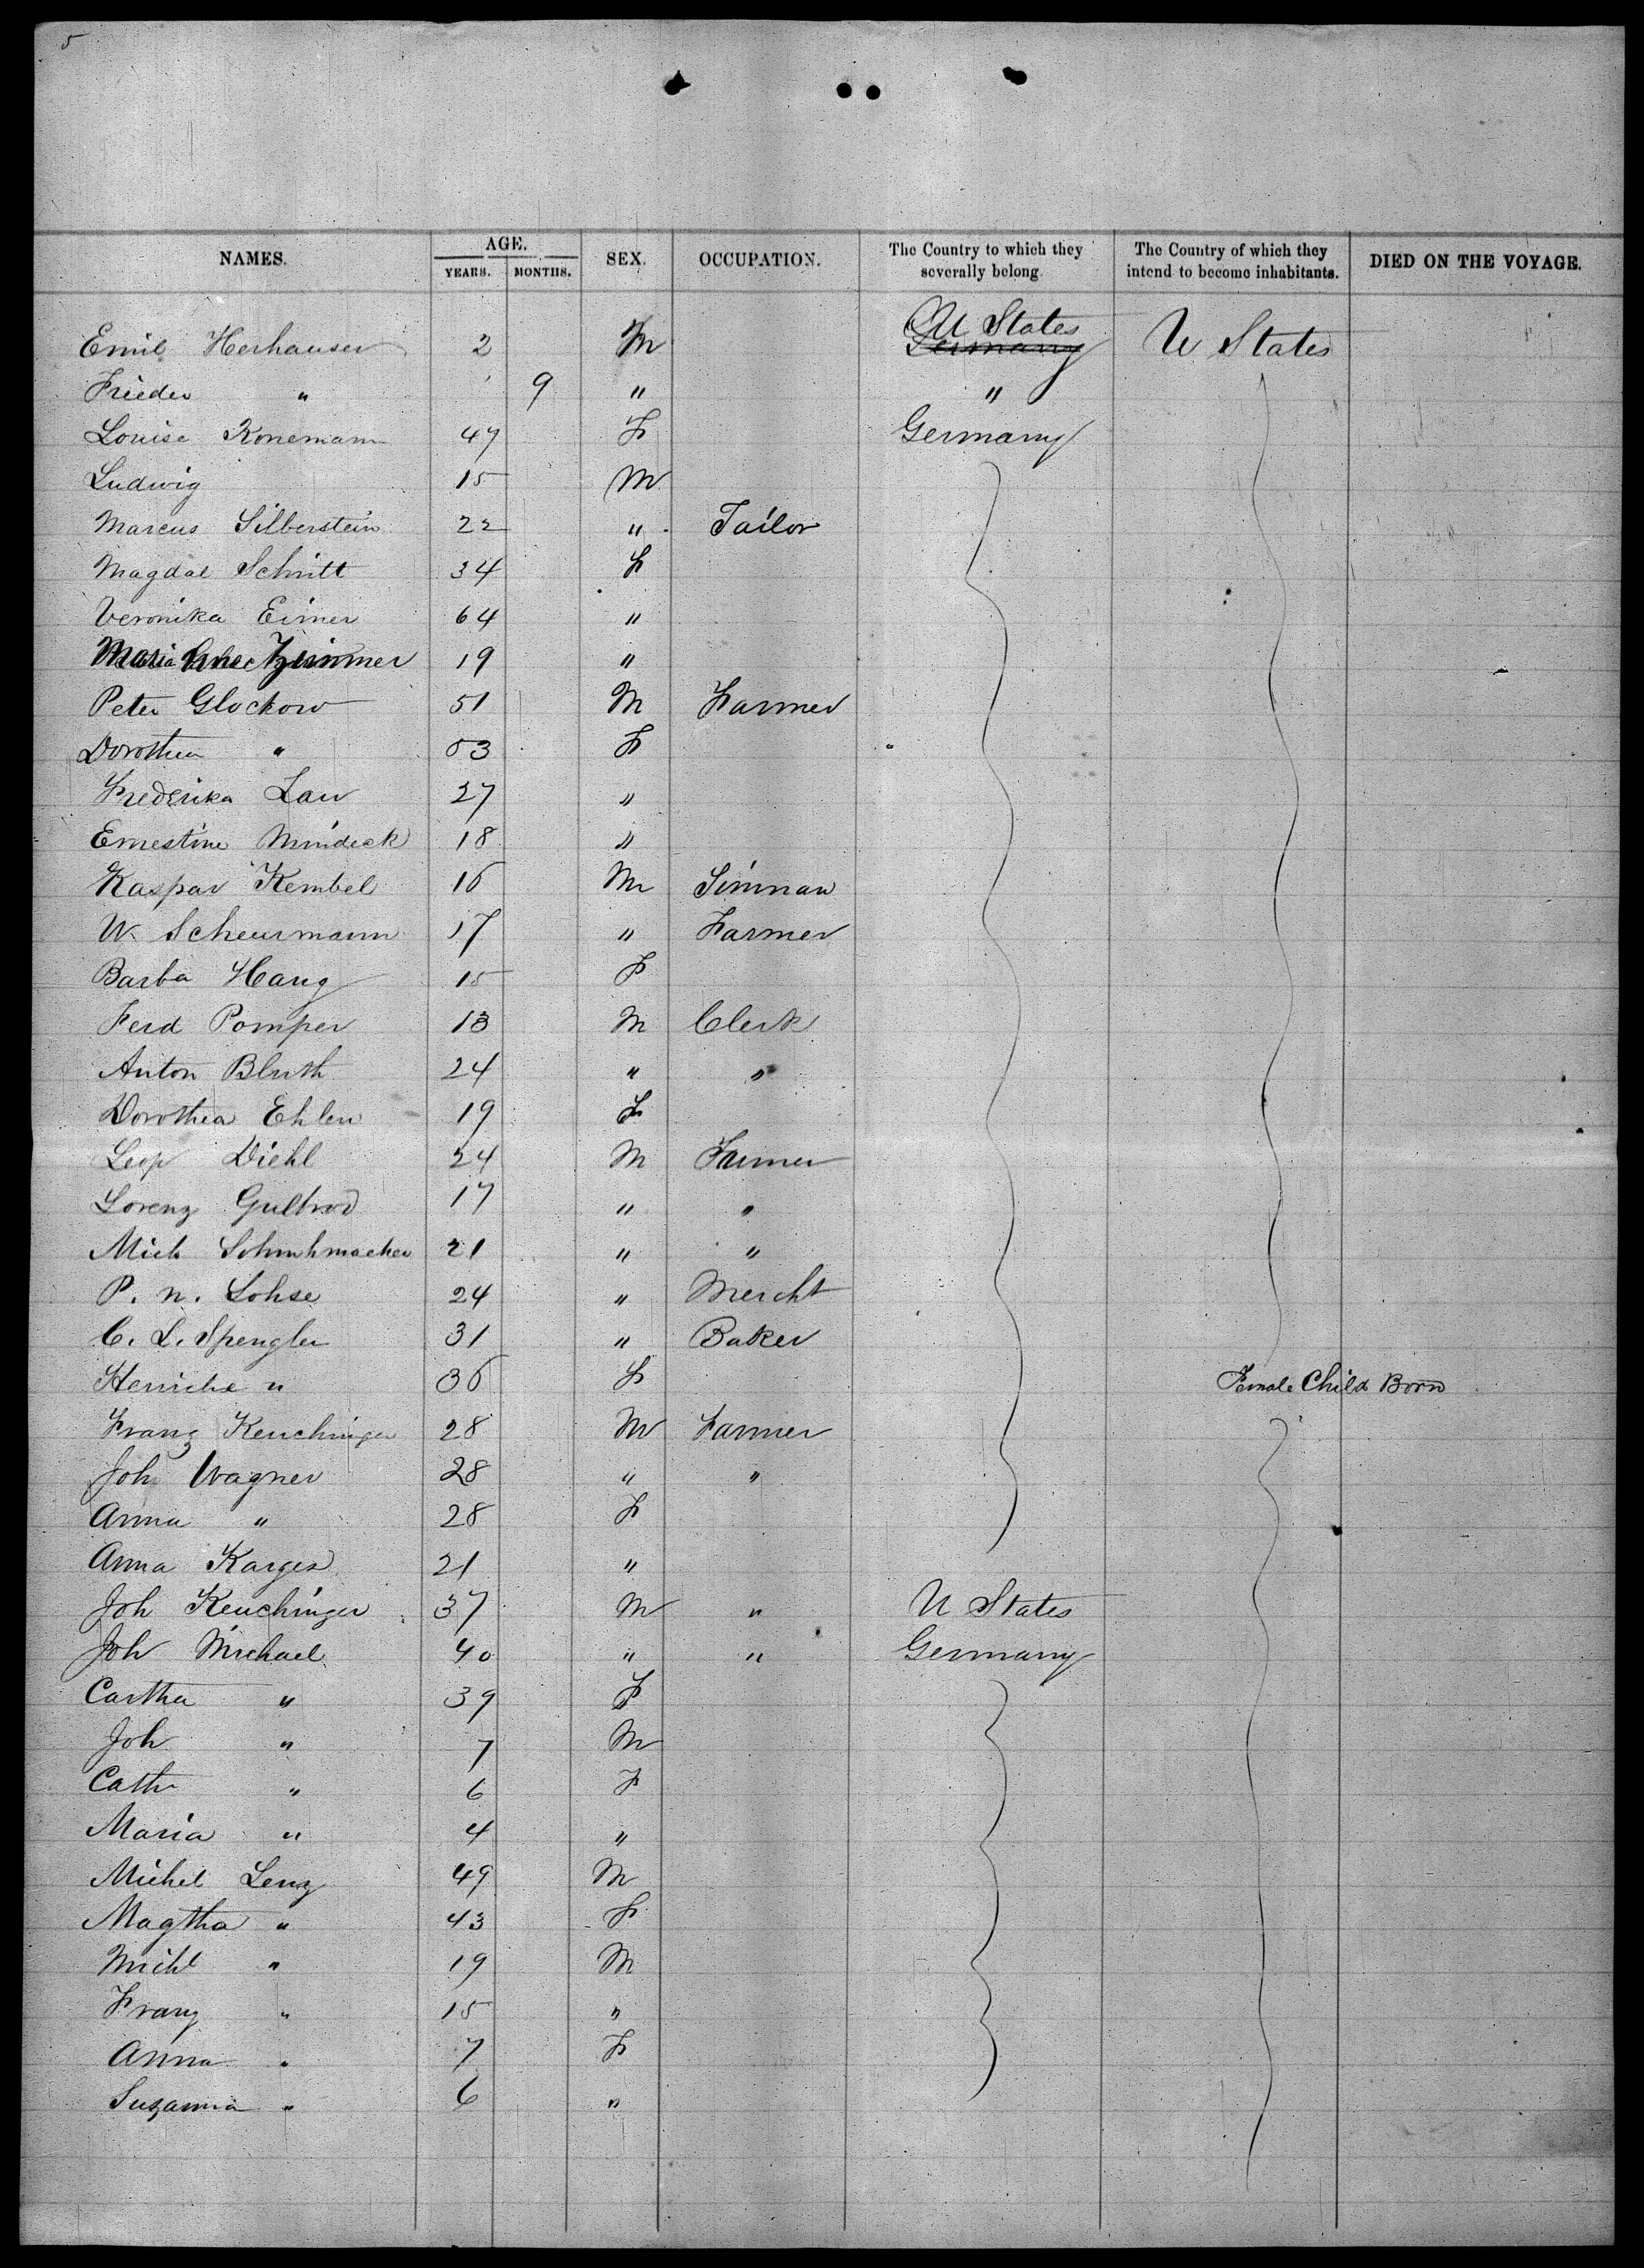 5
NAMES. AGE. SEX. OCCUPATION. The Country to which they severally belong. The Country of which they intend to become inhabitants. DIED ON THE VOYAGE.
YEARS. MONTHS.
Emil Herhauser 2 M U States Germany U States
Frieder " 9 " "
Louise Konemann 47 F Germany
Ludwig 15 M
Marcus Silberstein 22 " Tailor
Magdal Schmitt 34 F
Veronika Eimer 64 "
Maria 19 "
Peter Glockow 51 M Farmer
Dorothea " 53 F
Frederika Lau 27 "
Ernestine Mindeck 18 "
Kaspar Kembel 16 M
W. Scheurmann 17 " Farmer
Barba Haug 15 F
Ferd Pomper 18 M Clerk
Anton Bluth 24 " "
Dorothea Ehlen 19 F
Leop Diehl 24 M Farmer
Lorenz 17 " "
Mich Schuhmacher 21 " "
P. N. Lohse 24 " Mercht
C. L. Spengler 31 " Baker
" 36 F Female Child Born
Franz Keuchinger 28 M Farmer
Joh Wagner 28 " "
Anna " 28 F
Anna Karges 21 "
Joh Keuchinger 37 M " U States
Joh Michael 40 " " Germany
Cartha " 39 F
Joh " 7 M
Cath " 6 F
Maria " 4 "
Michel Lenz 49 M
Magtha " 43 F
Michl " 19 M
Franz " 15 "
Anna " 7 F
Suzanna " 6 "